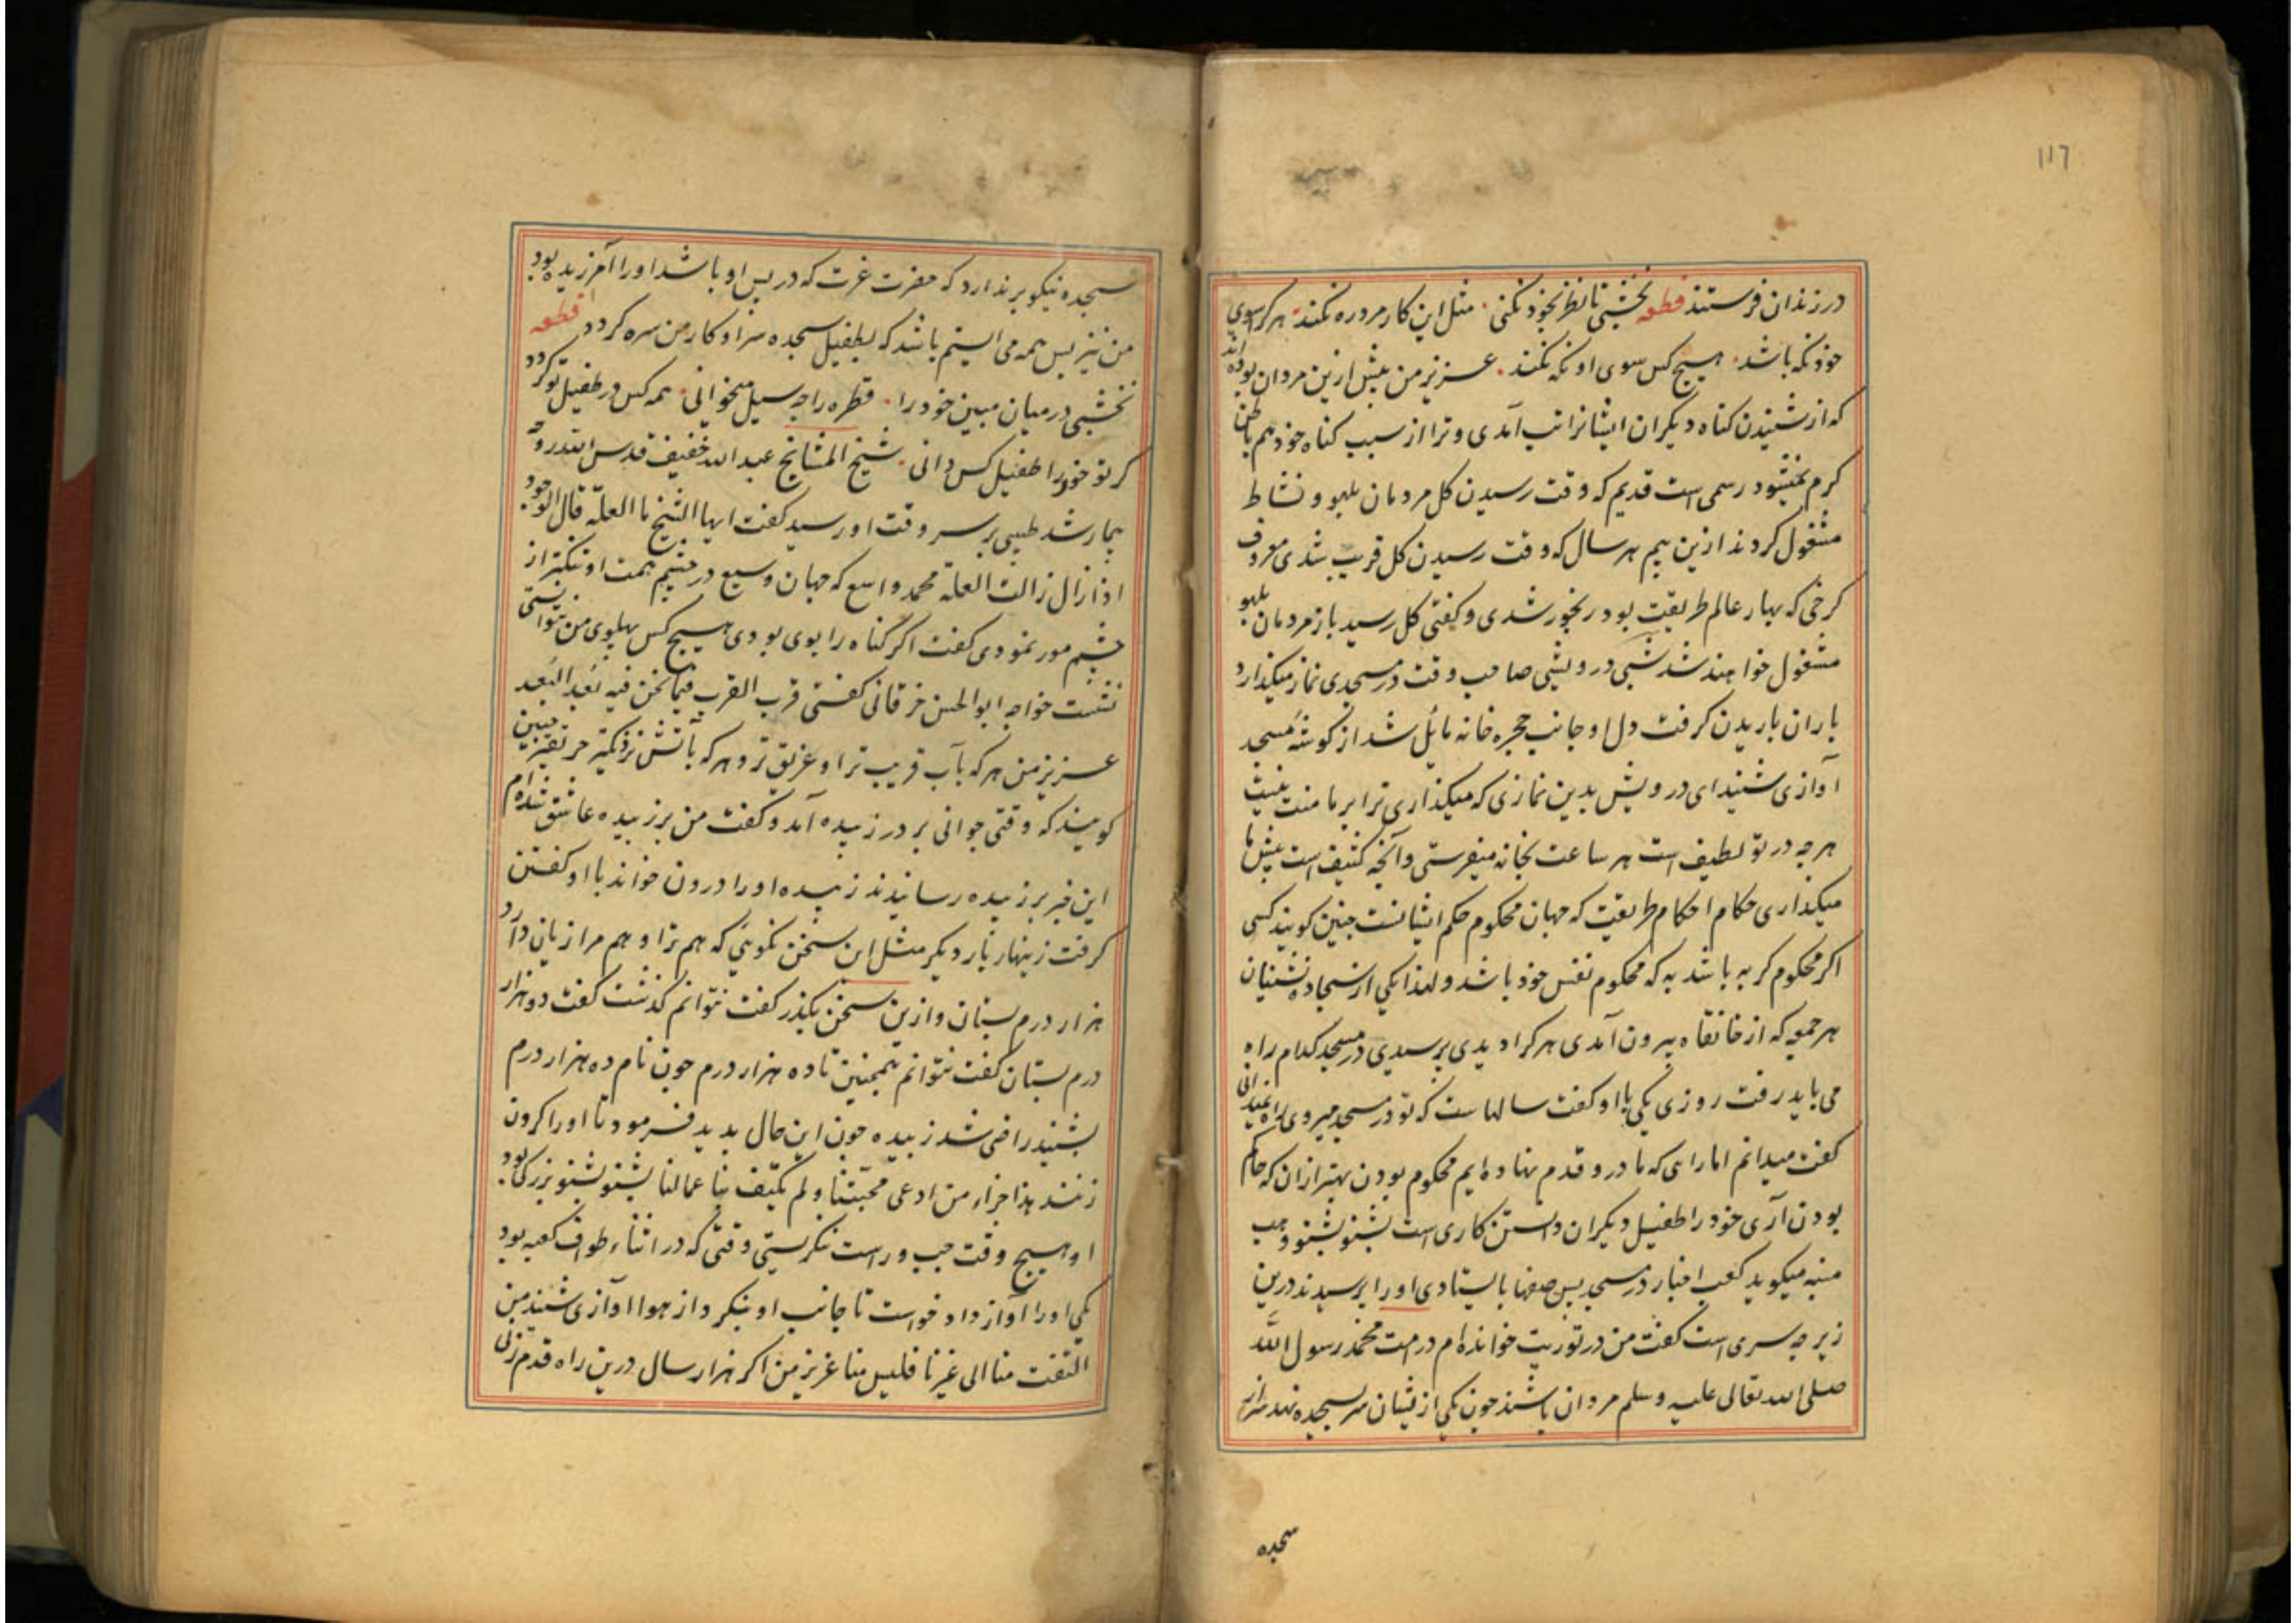 ۱۱۶
در زندان فرستند قطعه نخشبی تا نظر بخود نکنی مثل این کار مرد ره نکند هر کرا سوی
خود نکه باشد هیچ کس سوی او نکه نکند عزیز من پیش ازین مردان بوده اند
که از شنیدن کناه دیکران ایشانرا تب آمدی و ترا از سبب کناه خود هم باطن
کرم نمیشود رسمی است قدیم که وقت رسیدن کل مردمان بلهو و نشاط
مشغول کردند ازین بیم هر سال که وقت رسیدن کل قریب شدی معروف
کرخی که بهار عالم طریقت بود رنجور شدی و کفتی کل رسید باز مردمان بلهو
مشغول خواهند شد شبی درویشی صاحب وقت در مسجدی نماز میکذارد
باران باریدن کرفت دل او جانب حجره خانه مائل شد از کوشه مسجد
آوازی شنید ای درویش بدین نمازی که میکذاری ترا بر ما منت نیست
هر چه در تو لطیف است هر ساعت بخانه میفرستی و آنچه کثیف است پیش ما
میکذاری حکام احکام طریقت که جهان محکوم حکم ایشانست چنین کویند کسی
اکر محکوم کربه باشد به که محکوم نفس خود باشد و لهذا یکی از سجاده نشنیان
هر جمعه که از خانقاه بیرون آمدی هر کرا دیدی پرسیدی در مسجد کدام راه
می باید رفت روزی یکی با او کفت سالهاست که تو در مسجد میروی راه نمیدانی
کفت میدانم اما راهی که ما درو قدم نهاده ایم محکوم بودن بهتر از ان که حاکم
بودن آری خود را طفیل دیکران دانستن کاری است بشنو بشنو وهب
منبه میکوید کعب احبار در مسجد پس صفها بایستادی او را پرسیدند درین
زیر چه سری است کفت من در توریت خوانده ام در امت محمد رسول الله
صلی الله تعالی علیه وسلم مردان باشند چون یکی از یشان سر بسجده نهد سر از
سجده
سجده نیکو بر ندارد که حضرت عزت که در پس او باشد اورا آمرزیده بود
من نیز پس همه می ایستم باشد که بطفیل سجده سر او کار من سره کردد قطعه
نخشبی در میان مبین خود را قطره را چه سیل میخوانی همه کس در طفیل تو کردد
کر تو خود را طفیل کس دانی شیخ المشایخ عبد الله خفیف قدس الله روحه
بیمار شد طبیبی بر سر وقت او رسید کفت ایها الشیخ ما العلّة قال الوجود
اذا زال زالت العلة محمد واسع که جهان وسیع در چشم همت او تنکتر از
چشم مور نمودی کفت اکر کناه را بوی بودی هیچ کس پهلوی من نتوانستی
نشست خواجه ابو الحسن خرقانی کفتی قرب القرب فیما نحن فیه بُعد البُعد
عزیز من هر که بآب قریب تر او غریق تر و هر که بآتش نزدیکتر حریقتر چنین
کویند که وقتی جوانی بر در زبیده آمد و کفت من بر زبیده عاشق شده ام
این خبر بر زبیده رسانیدند زبیده او را درون خواند با او کفتن
کرفت زینهار بار دیکر مثل این سخن نکوئی که هم ترا و هم مرا زیان دارد
هزار درم بستان و ازین سخن بکذر کفت نتوانم کذشت کفت دو هزار
درم بستان کفت نتوانم همچنین تا ده هزار درم چون نام ده هزار درم
بشنید راضی شد زبیده چون این حال بدید فرمود تا او را کردن
زنند هذا جزاء من ادعی محبتنا و لم یکتف باعمالنا بشنو بشنو بزرکی بود
او هیچ وقت چپ و راست ننکریستی وقتی که در اثناء طواف کعبه بود
یکی او را آواز داد خواست تا جانب او بنکرد از هوا آوازی شنید من
التفت منا الی غیرنا فلیس منا عزیز من اکر هزار سال درین راه قدم زنی